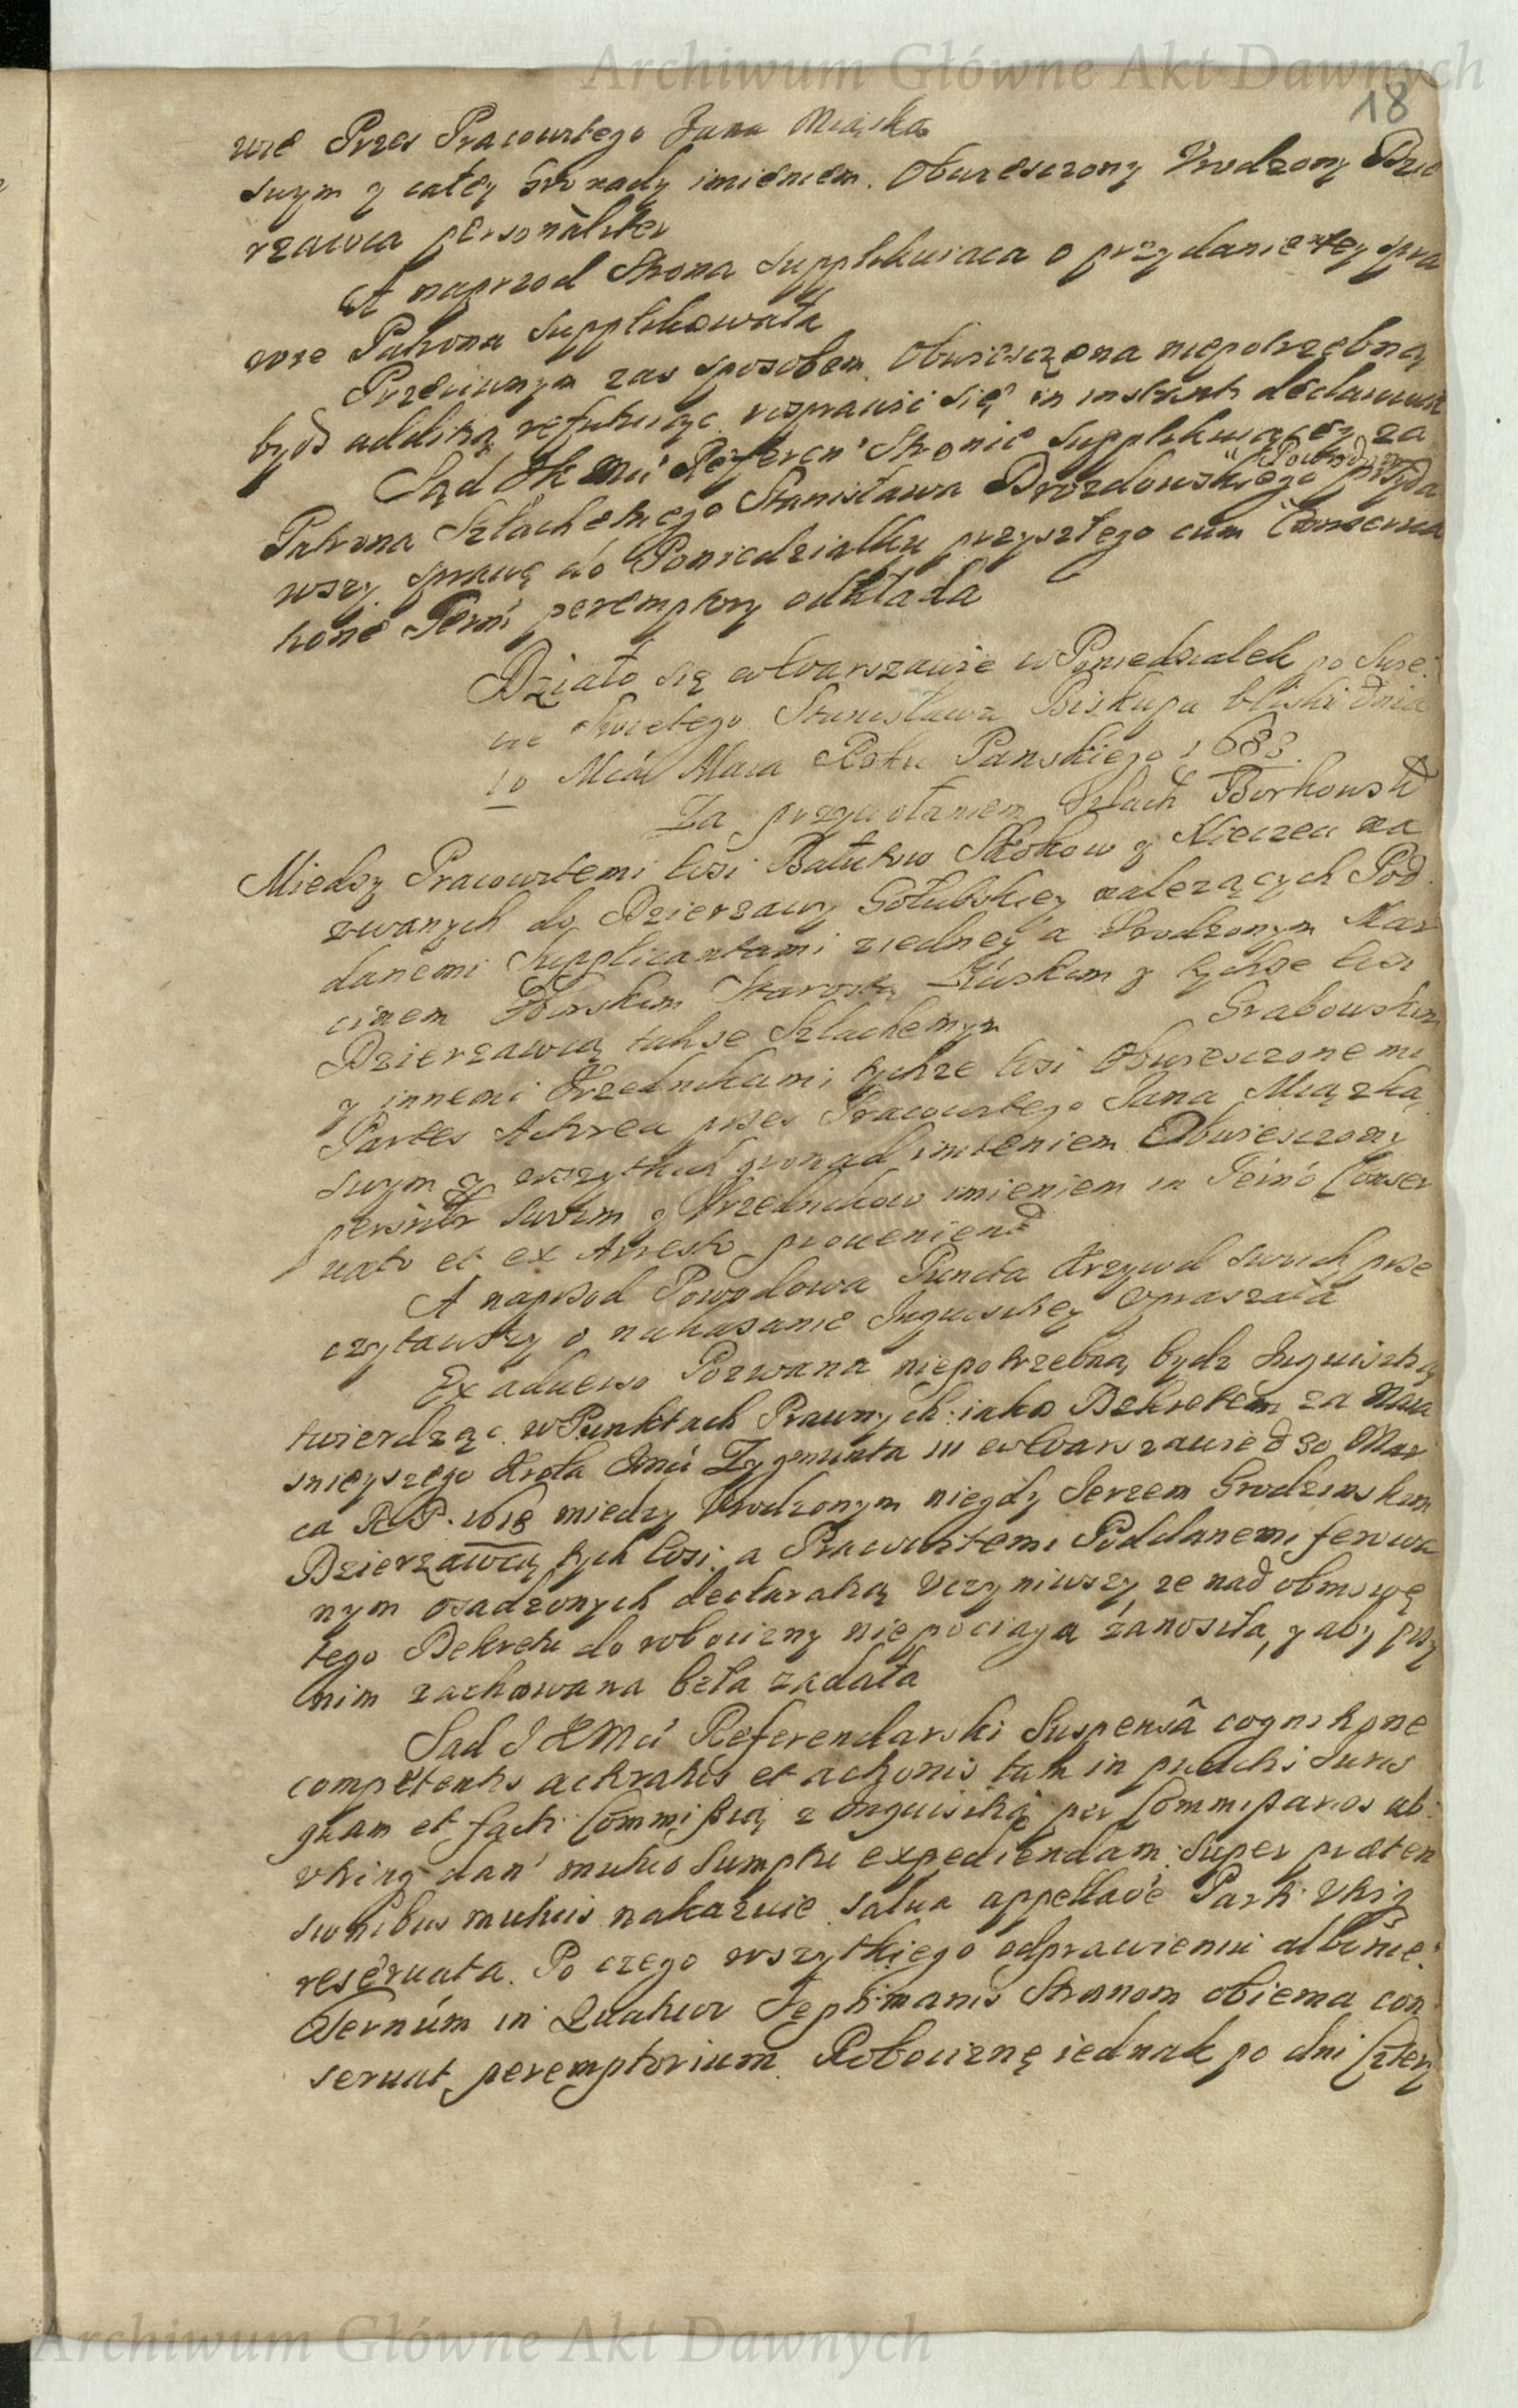 Archiwum Główne Akt Dawnych
18
wie Przez Pracowitego Jana Miąska
swym y całey Gromady imieniem. Obwiesczony Vrodzony Dzie
rzawca personaliter
A naprzod Strona Supplikuiaca o przydanie tey spra
wie Patrona Supplikowała
Przeciwnym zas sposobem Obwiesczona niepotrzebną
bydz additią refutuiąc rosprawić się in instanti declarowała
Sąd JK Mći Referen' Stronie Supplikuiącey za
Patrona Szlachetnego Stanisława Drozdowskiego przyda
wszy sprawę do Poniedziałku przyszłego cum Conserva
tione Term: peremptory odkłada
Działo się w Warszawie w Poniedziałek po Swię:
cie Swietego Stanisława Biskupa bliski dnia
10 Mća Maia Roku Panskiego 1683.
Za przywołaniem Szlach Borkowsk
Miedzy Pracowitemi Wsi Bałutow Skokow y Nieczeci na
zwanych do Dzierzawy Gołubskiey nalezących Pod
danemi Supplicantami ziedney a Vrodzonym Mar
cinem Starostą y tychze Wsi
Dzierzawcą takze Szlachetnym Grabowskim
y innemi Vrzednikami tychze Wsi Obwiesczonemi
Partes Actorea przez Pracowitego Jana Miązka
swym y wszytkich gromad imieniem Obwiesczony
swoim y Vrzednikow imieniem in Termo Conser
vato et ex Arresto provenien
A naprzod Powodowa Puncta Krzywd swoich prze
czytawszy o nakazanie Inquisitiey vpraszała
Ex adverso Pozwana niepotrzebną bydz Inquisitią
twierdząc w Punktach Prawnych iako Dekretem za Naia
snieyszego Krola JMći Zygmunta III w Warszawie d 30 Mar
ca R P. 1618 miedzy Vrodzonym niegdy Jerzem Grodzinskim
Dzierzawcą tych Wsi a Pracowitemi Poddanemi ferowa
nym osadzonych declaratią vczyniwszy ze nad obmowę
tego Dekretu do robocizny niepociąga zanosiła, y aby przy
nim zachowana beła ządała
Sad J K Mći Referendarski Suspensa cognitione
competentis actoratus et actionis tam in puncti Juris
quam et facti Commissią z Inquisitią per Commissarios ab
vtrinq dan' mutuo sumptu expediendam super praeten
sionibus mutuis nakazuie salva appellaoe Parti vtriq
reservata. Po czego wszytkiego odprawieniu albo nie:
Ternum in Quatuor Septimanis Stronom obiema con
servat peremptorium. Robociznę iednak po dni Cztery
Archiwum Główne Akt Dawnych